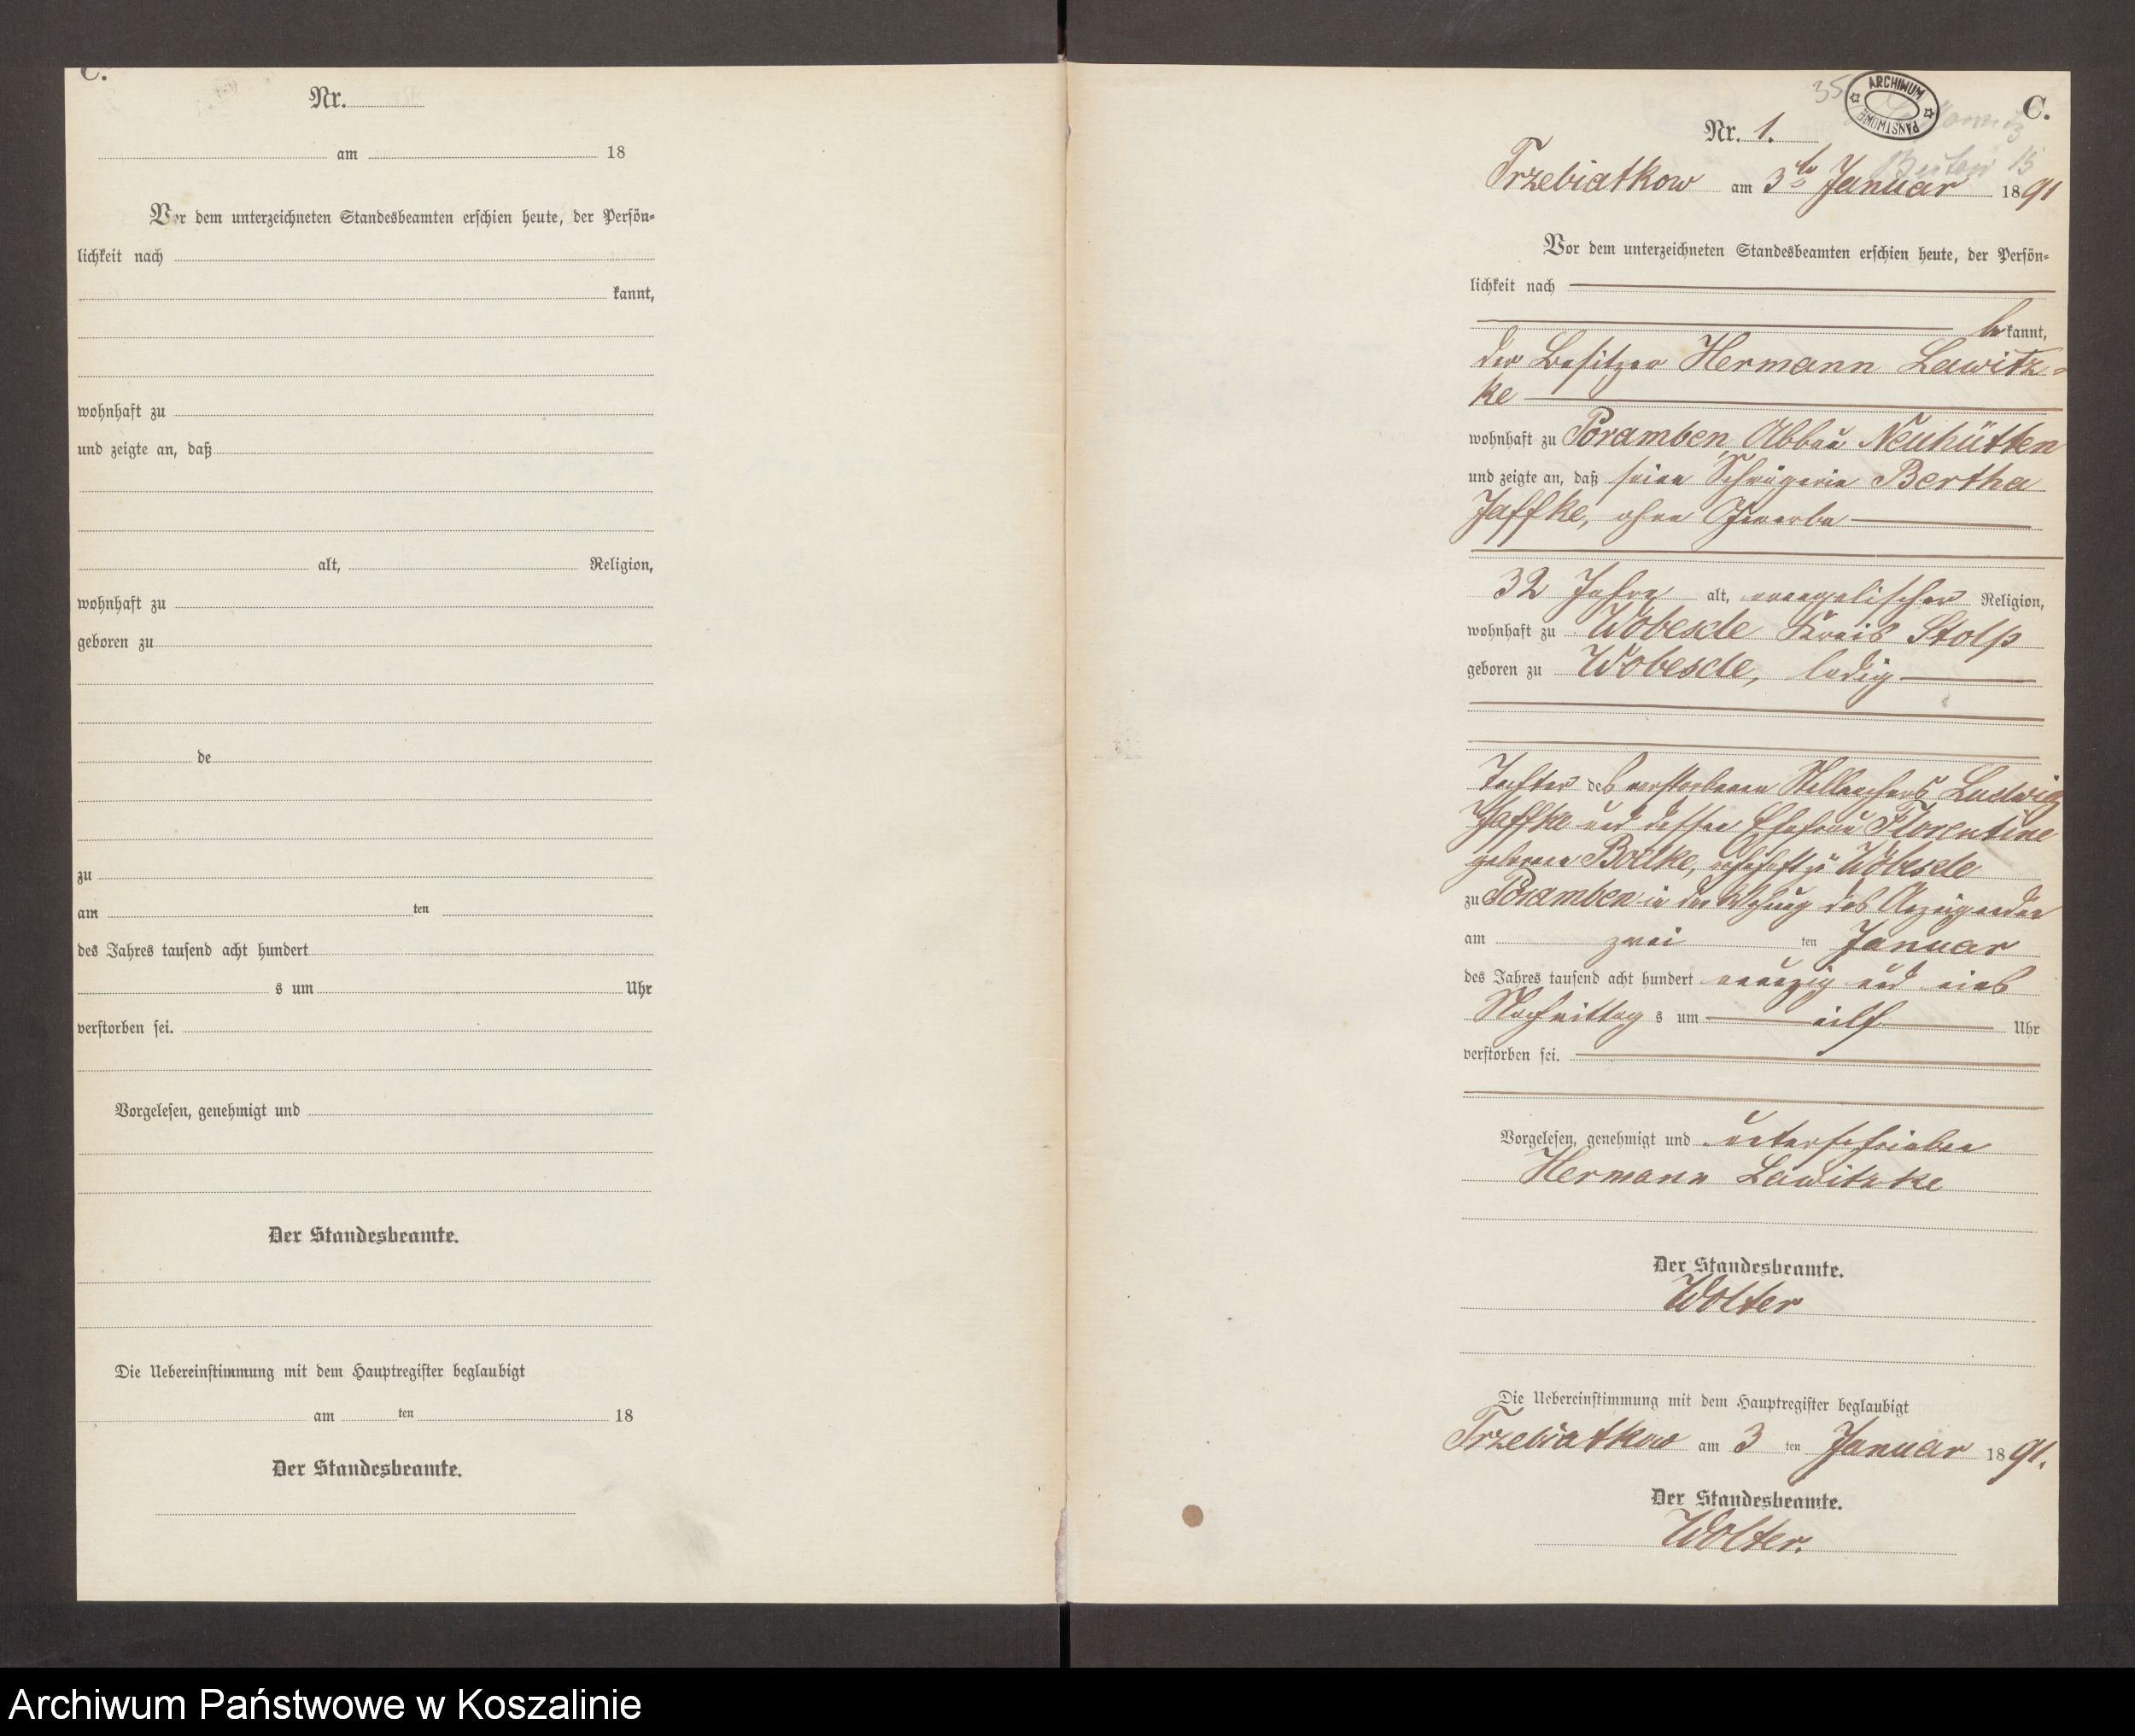 C.
Nr.
am 18
Vor dem unterzeichneten Standesbeamten erschien heute, der Persön-
lichkeit nach
kannt,
wohnhaft zu
und zeigte an, daß
alt, Religion,
wohnhaft zu
geboren zu
de
zu
am ten
des Jahres tausend acht hundert
s um Uhr
verstorben sei.
Vorgelesen, genehmigt und
Der Standesbeamte.
Die Uebereinstimmung mit dem Hauptregister beglaubigt
am ten 18
Der Standesbeamte.
35
ARCHIWUM PAŃSTWOWE
C.
Nr. 1.
Trzebiatkow am 3ten Januar 1891
Vor dem unterzeichneten Standesbeamten erschien heute, der Persön-
lichkeit nach
bekannt,
der Besitzer Hermann Lawitz-
ke
wohnhaft zu Poramben, Abbau Neuhütten
und zeigte an, daß seine Schwägerin Bertha
Jaffke, ohne Gewerbe
32 Jahre alt, evangelischer Religion,
wohnhaft zu Wobesde Kreis Stolp
geboren zu Wobesde, ledig
Tochter des verstorbenen Ludwig
Jaffke und dessen Ehefrau Florentine
geborene Boelke, wohnhaft zu Wobesde
zu Poramben in der Wohnung des Anzeigenden
am zwei ten Januar
des Jahres tausend acht hundert neunzig und eins
Nachmittags um eilf Uhr
verstorben sei.
Vorgelesen, genehmigt und unterschrieben
Hermann Lawitzke
Der Standesbeamte.
Wolter
Die Uebereinstimmung mit dem Hauptregister beglaubigt
Trzebiatkow am 3 ten Januar 1891.
Der Standesbeamte.
Wolter.
Archiwum Państwowe w Koszalinie